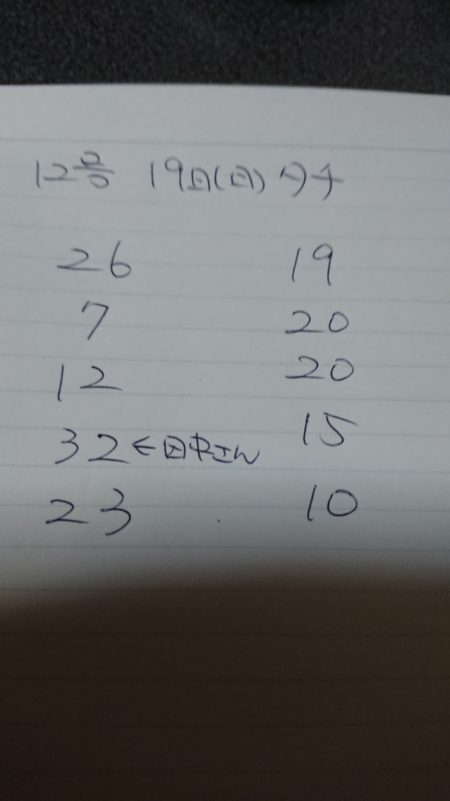 12号 19日(日)分
26 19
7 20
12 20
32←田中さん 15
23 10